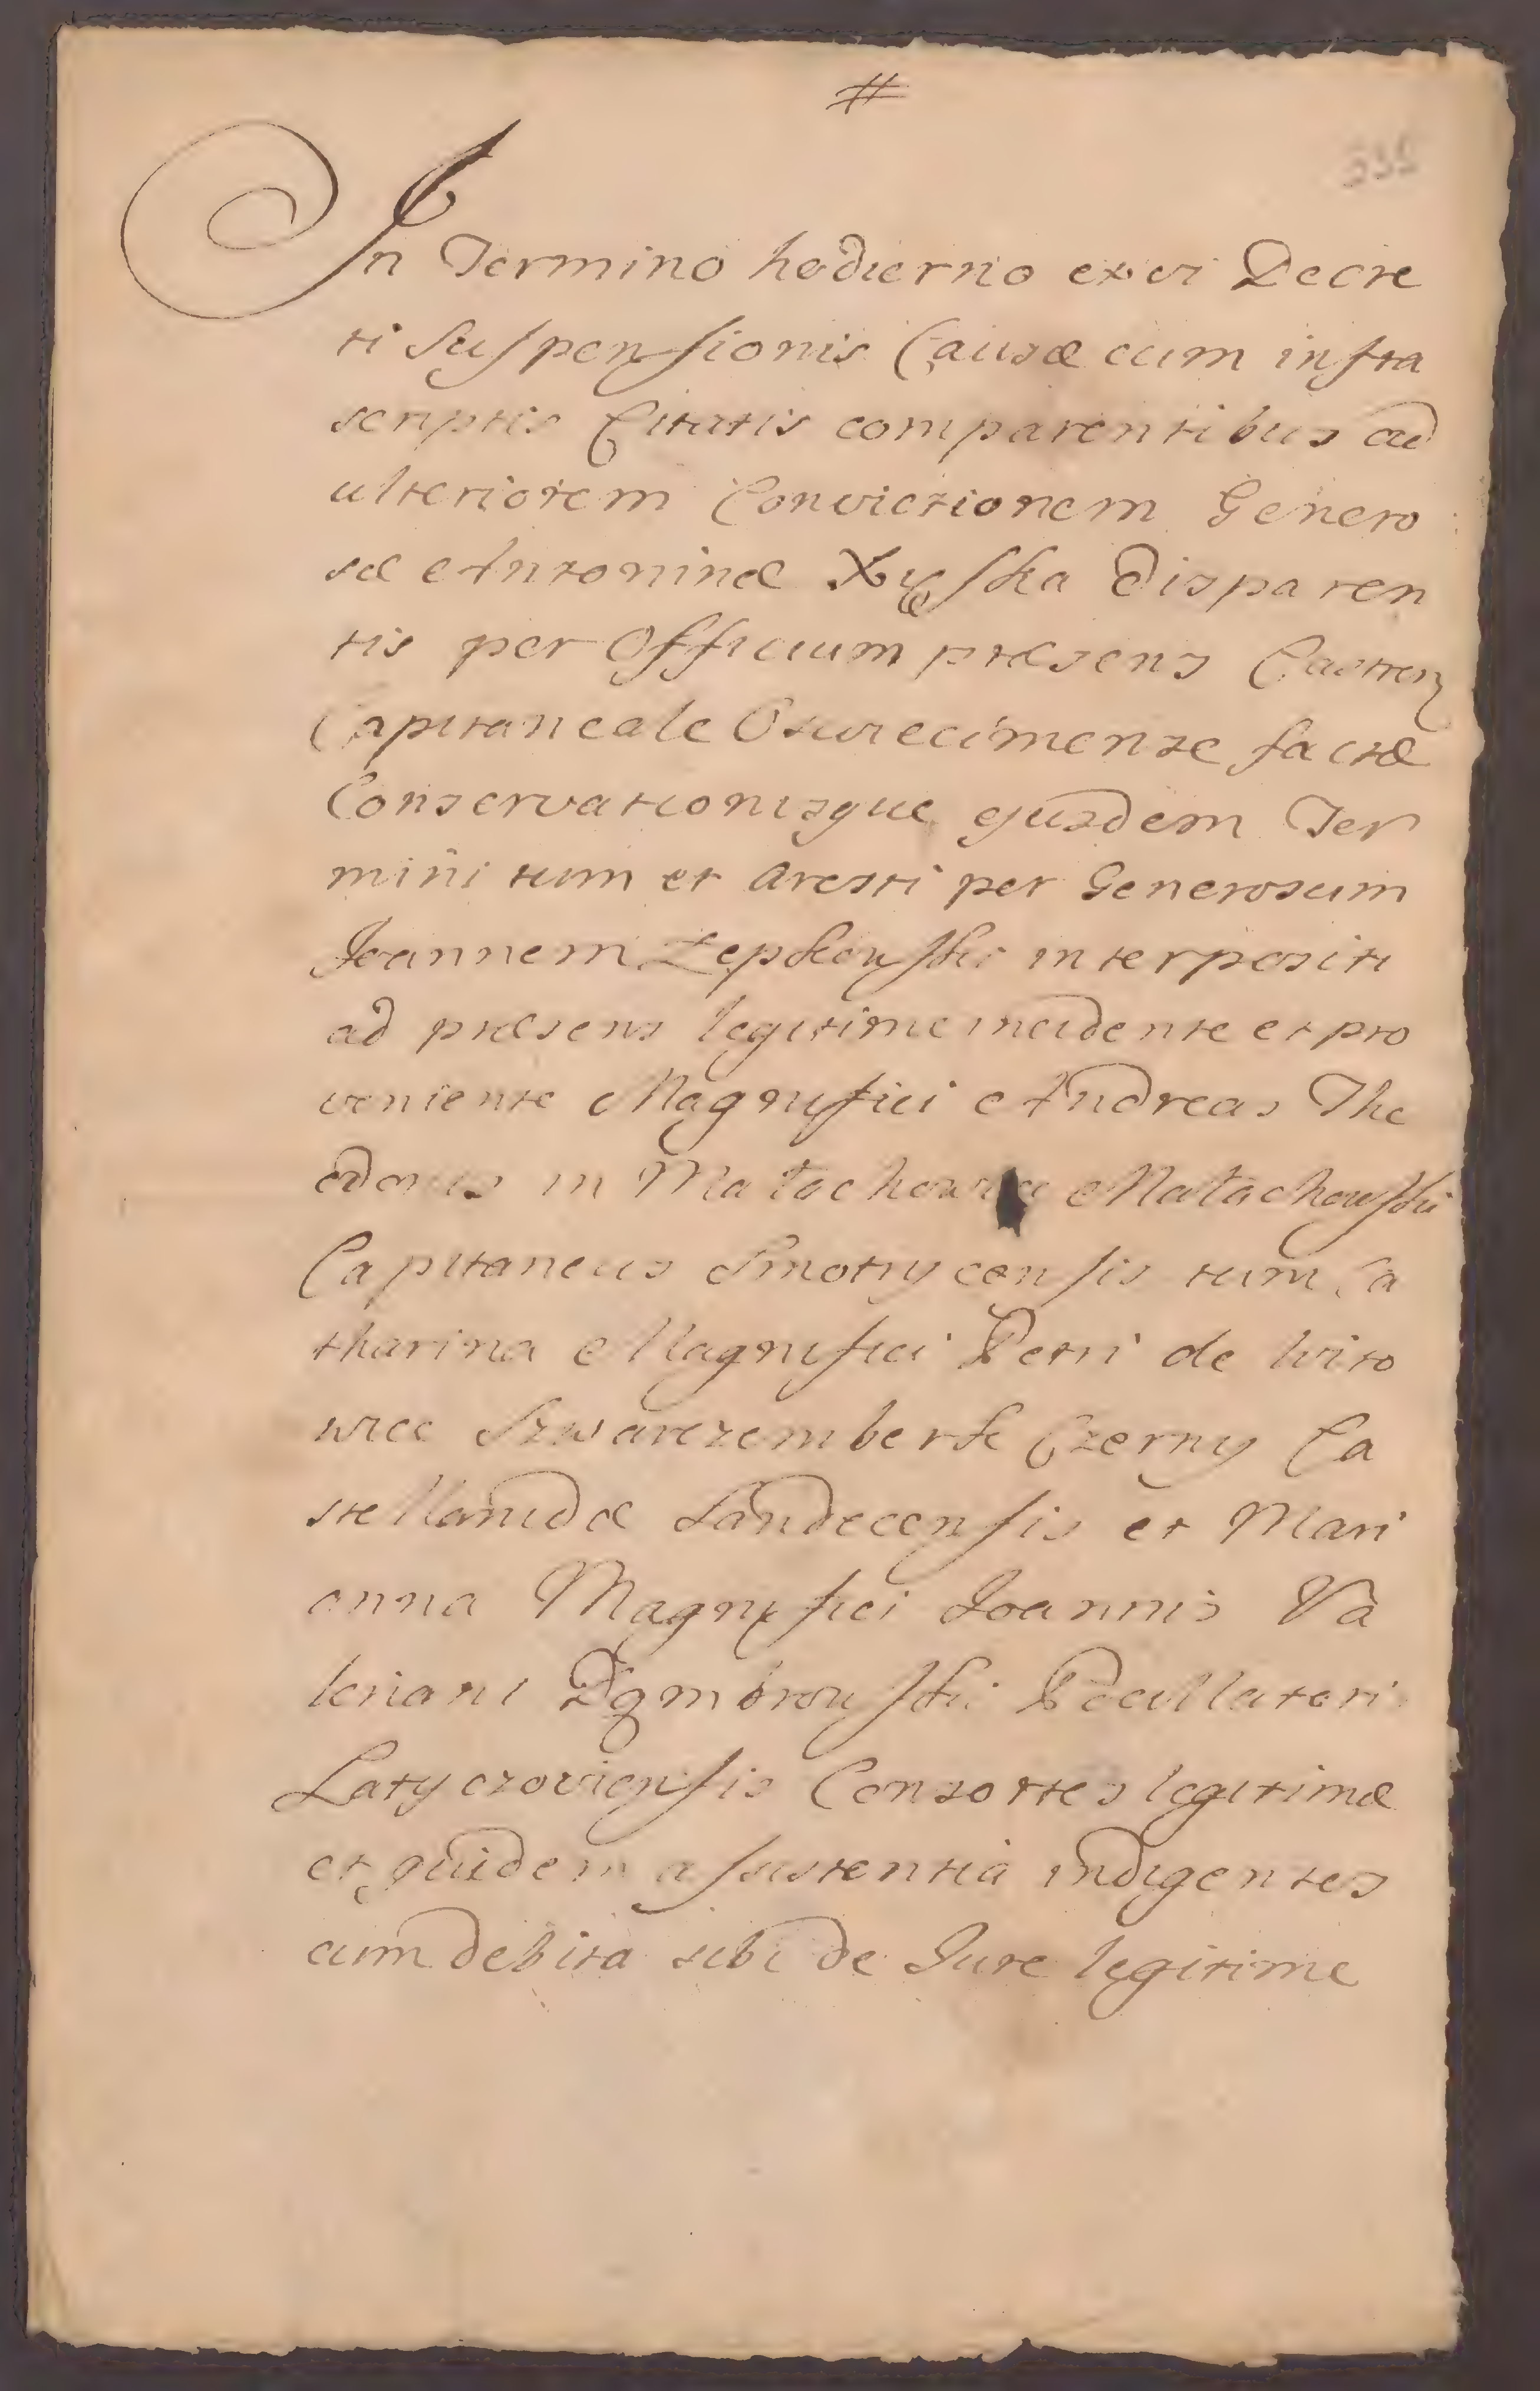 #
In Termino hodierno ex vi Decre
ti Suspensionis Causæ cum infra
scriptis Citatis comparentibus ad
ulteriorem Convictionem Genero
sæ Antoninæ Xyska disparen
tis per Officium præsens Castren
Capitaneale Oswiecimense factæ
Conservationisque ejusdem Ter
mini tum et Aresti per Generosum
Joannem Łepkowski interpositi
ad præsens legitime incidente et pro
veniente Magnifici Andreas The
odorus in Małachowice Małachowski
Capitaneus Smotrycensis tum Ca
tharina Magnifici Petri de Wito
wice Szwarczemberk Czerny Ca
stellanidæ Sandecensis et Mari
anna Magnifici Joannis Va
leriani Dąmbrowski Pocillatori
Latyczoviensis Consortes legitimæ
et quidem assistentia indigentes
cum debita sibi de Jure legitime